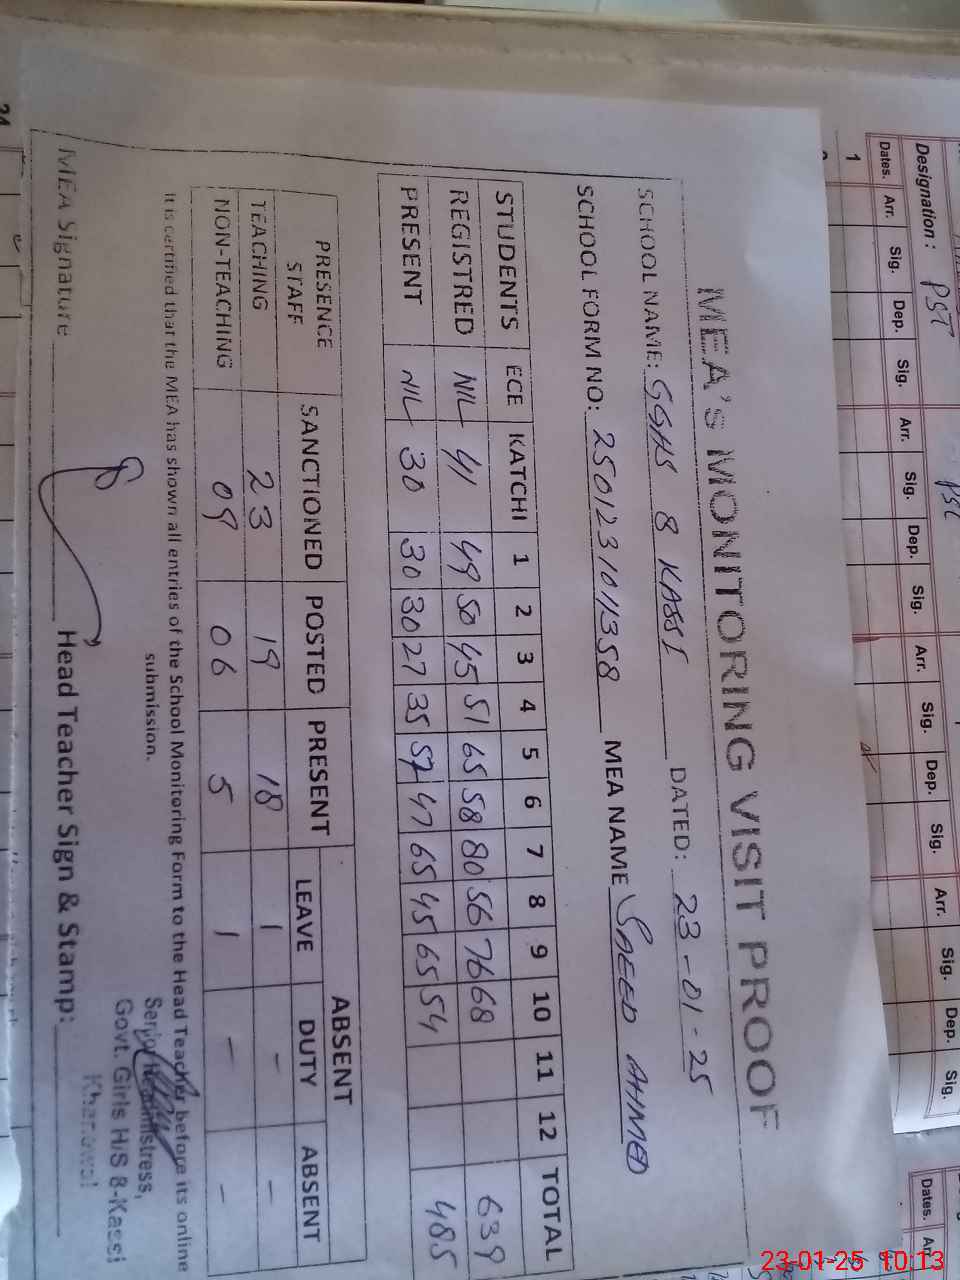 Designation: PST
Dates. Arr. Sig. Dep. Sig. Arr. Sig. Dep. Sig. Arr. Sig. Dep. Sig. Arr. Sig. Dep. Sig.
1
Dates.
MEA's MONITORING VISIT PROOF
SCHOOL NAME: GGHS 8 KASSI DATED: 23-01-25
SCHOOL FORM NO: 2501231011358 MEA NAME SAEED AHMED
STUDENTS ECE KATCHI 1 2 3 4 5 6 7 8 9 10 11 12 TOTAL
REGISTRED NIL 41 49 50 45 51 65 58 80 56 76 68 639
PRESENT NIL 30 30 30 27 35 57 47 65 45 65 54 485
PRESENCE STAFF SANCTIONED POSTED PRESENT ABSENT
LEAVE DUTY ABSENT
TEACHING 23 19 18 1 - -
NON-TEACHING 09 06 5 1 - -
It is certified that the MEA has shown all entries of the School Monitoring Form to the Head Teacher before its online
submission.
Senior Headmistress,
Govt. Girls H/S 8-Kassi
Khanewal
MEA Signature Head Teacher Sign & Stamp:
24
23-01-25 10:13